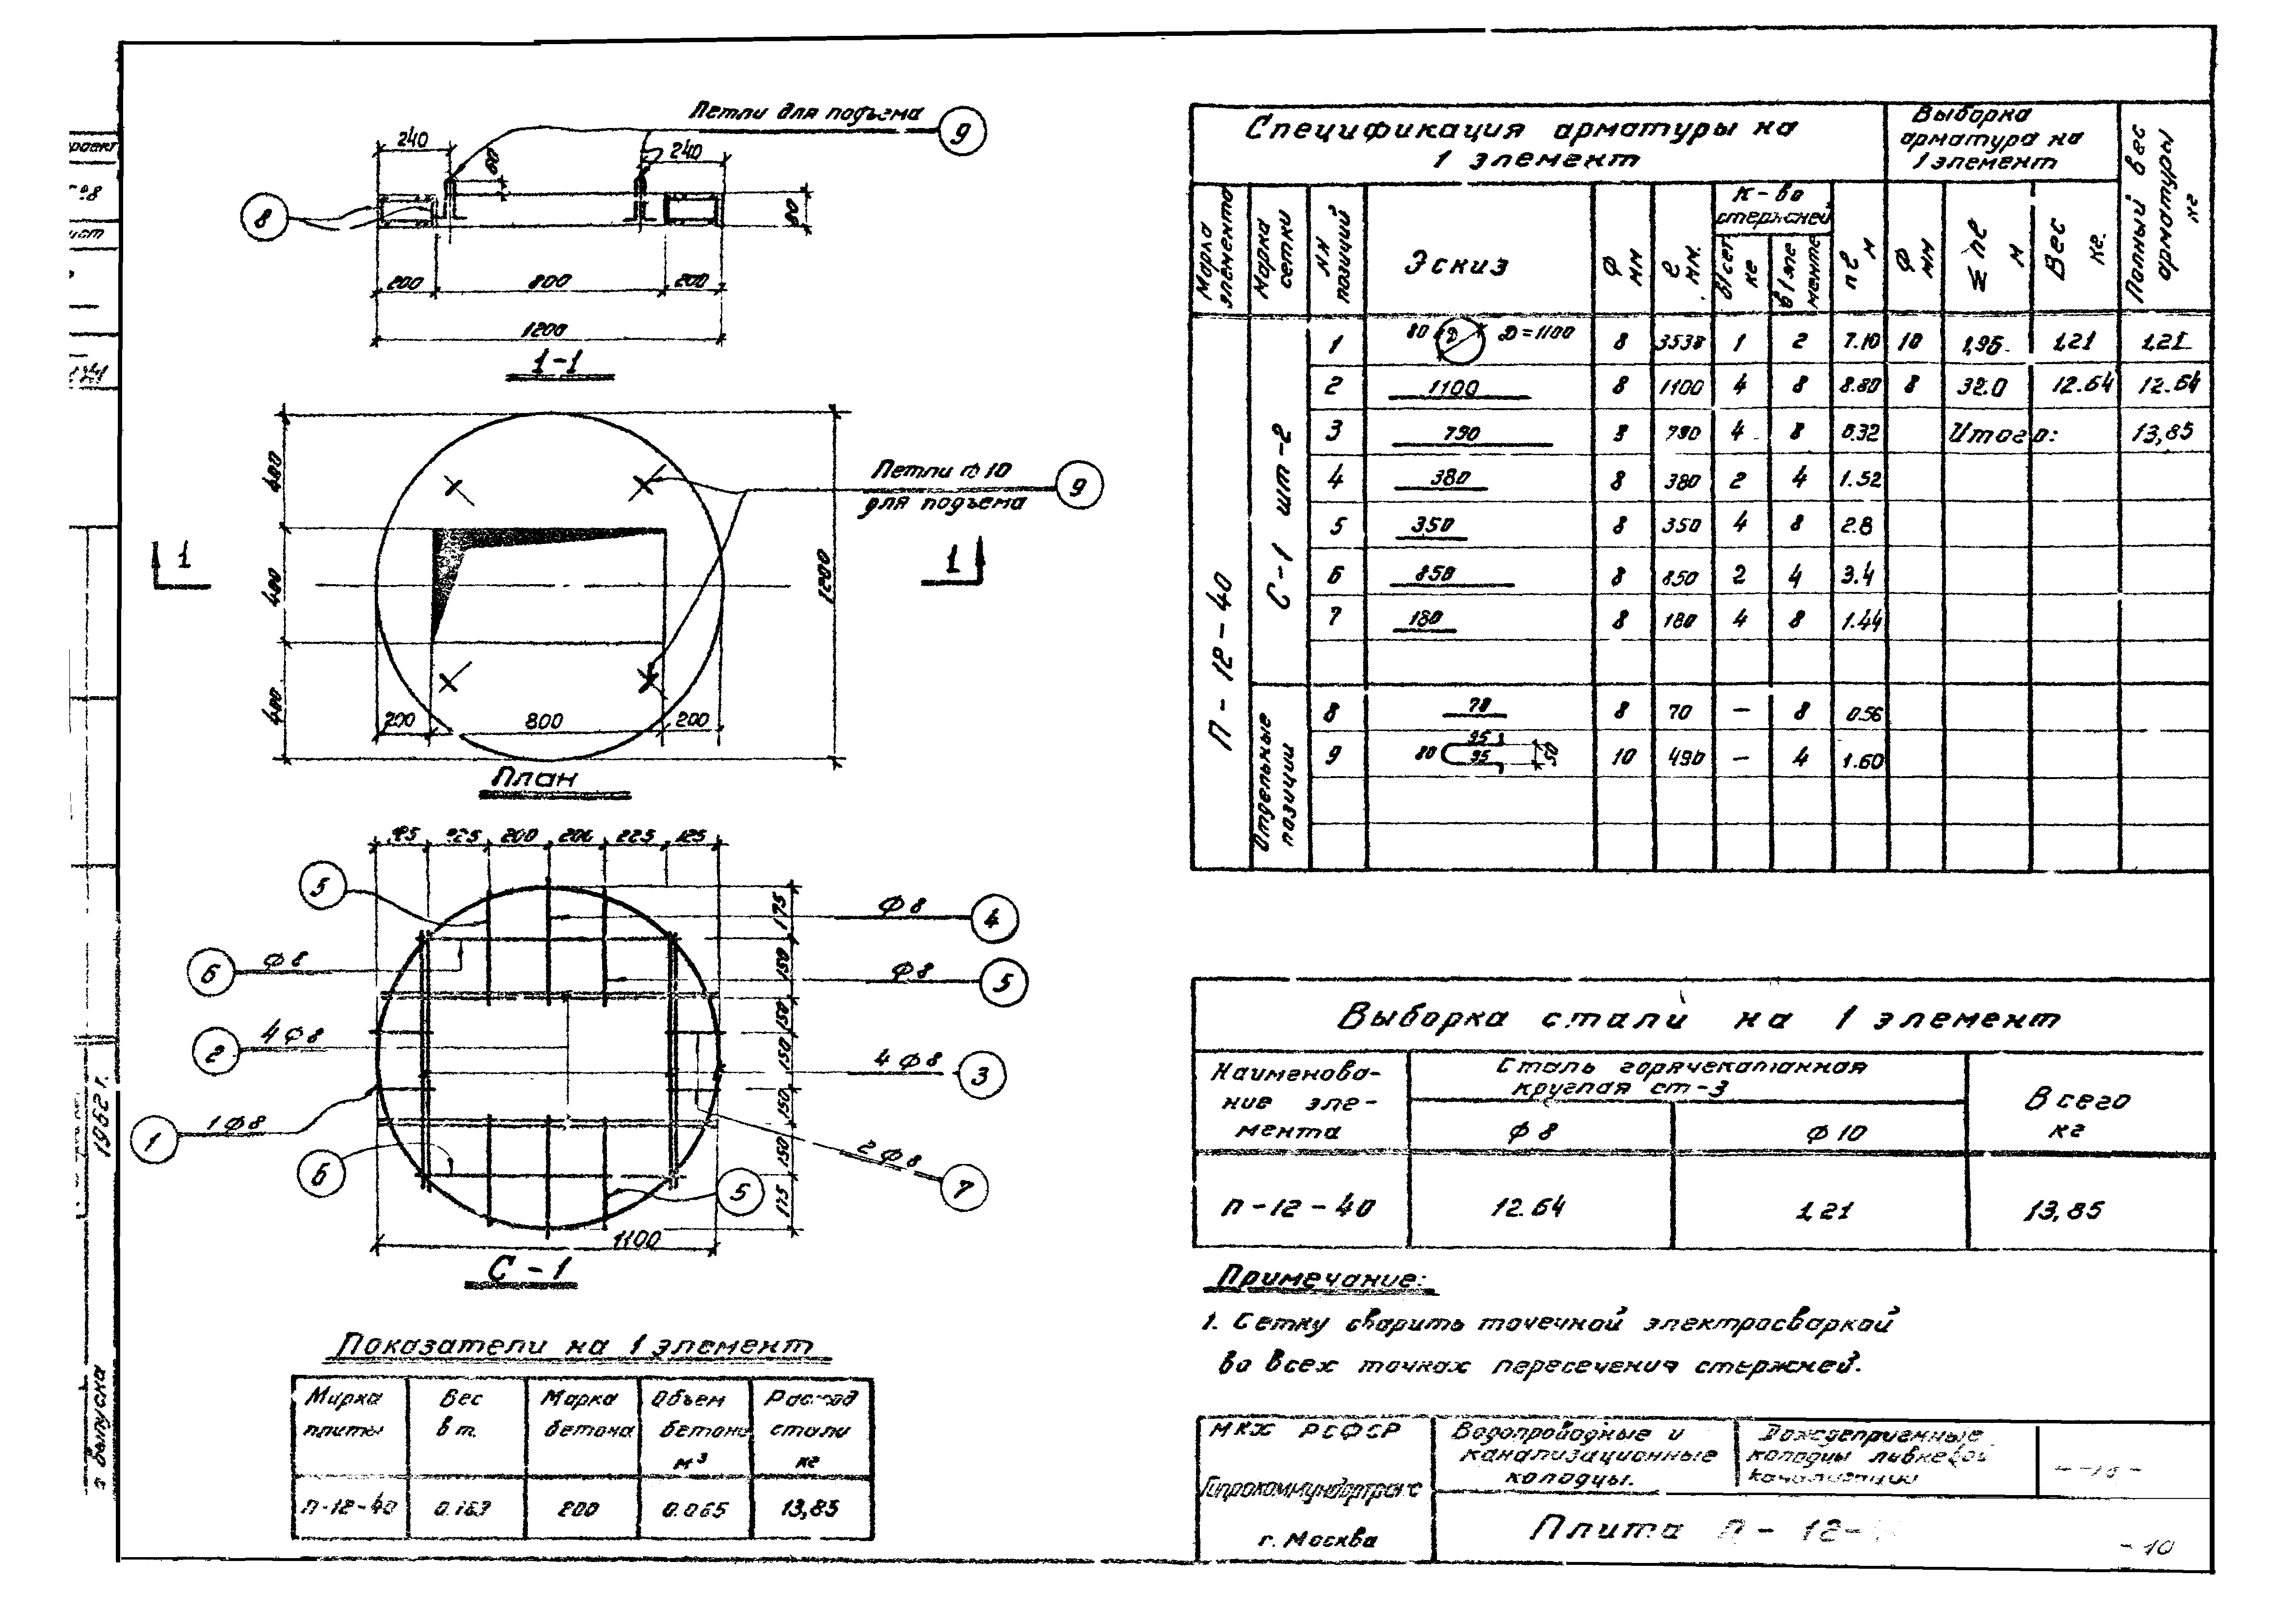 Петли для подъема
9
240
60
240
8
80
200
800
200
1200
1-1
480
Петли Ф10
для подъема
9
1
1
400
1200
480
200
800
200
План
125
225
200
200
225
125
5
Ф8
4
175
6
Ф8
150
Ф8
5
150
2
4Ф8
150
4Ф8
3
1
1Ф8
150
150
2Ф8
6
5
7
175
1100
С-1
Показатели на 1 элемент
Марка плиты
Вес в т.
Марка бетона
Объем бетона м³
Расход стали кг
П-12-40
0.163
200
0.065
13,85
Спецификация арматуры на
1 элемент
Выборка
арматура на
1 элемент
Полный вес арматуры кг
Марка элемента
Марка сетки
NN позиций
Эскиз
Ф мм
ℓ мм.
К-во стержней
в 1 сетке
в 1 элементе
nℓ м
Ф мм
Σnℓ м
Вес кг.
П-12-40
С-1 шт-2
1 80 D D=1100 8 3538 1 2 7.10 10 1,96 1,21 1,21
2 1100 8 1100 4 8 8.80 8 32.0 12.64 12.64
3 790 8 790 4 8 6.32 Итого: 13,85
4 380 8 380 2 4 1.52
5 350 8 350 4 8 2.8
6 850 8 850 2 4 3.4
7 180 8 180 4 8 1.44
Отдельные позиции
8 70 8 70 — 8 0.56
9 80 95 95 50 10 490 — 4 1.60
Выборка стали на 1 элемент
Наименова-
ние эле-
мента
Сталь горячекатанная
круглая ст-3
Всего
кг
Ф8
Ф10
П-12-40
12.64
1,21
13,85
Примечание:
1. Сетку сварить точечной электросваркой
во всех точках пересечения стержней.
МКХ РСФСР
Гипрокоммундортранс
г. Москва
Водопроводные и
канализационные
колодцы.
Дождеприемные
колодцы ливневой
канализации
Плита П-12-
-10
1962 г.
выпуска